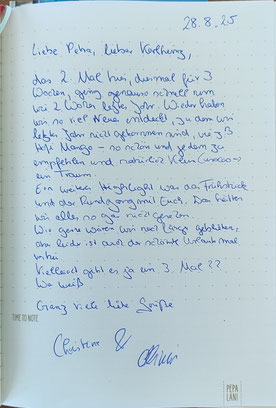 28.8.25
Liebe Petra, lieber Karlheinz,
das 2. Mal hier, diesmal für 3
Wochen, ging genauso schnell rum
wie 2 Wochen letztes Jahr. Wieder haben
wir so viel Neues entdeckt, zu dem wir
letztes Jahr nicht gekommen sind, wie z.B
Hofi Mango - so schön und jedem zu
empfehlen und natürlich Klein Curacao -
ein Traum.
Ein weiteres Highlight war das Frühstück
und der Rundgang mit Euch. Das hätten
wir alles so gar nicht gesehen.
Wie gerne wären wir noch länger geblieben,
aber leider ist auch der schönste Urlaub mal
vorbei.
Vielleicht gibt es ja ein 3. Mal??
Wer weiß
Ganz viele liebe Grüße
TIME TO NOTE
Christiane &
PEPA
LANI